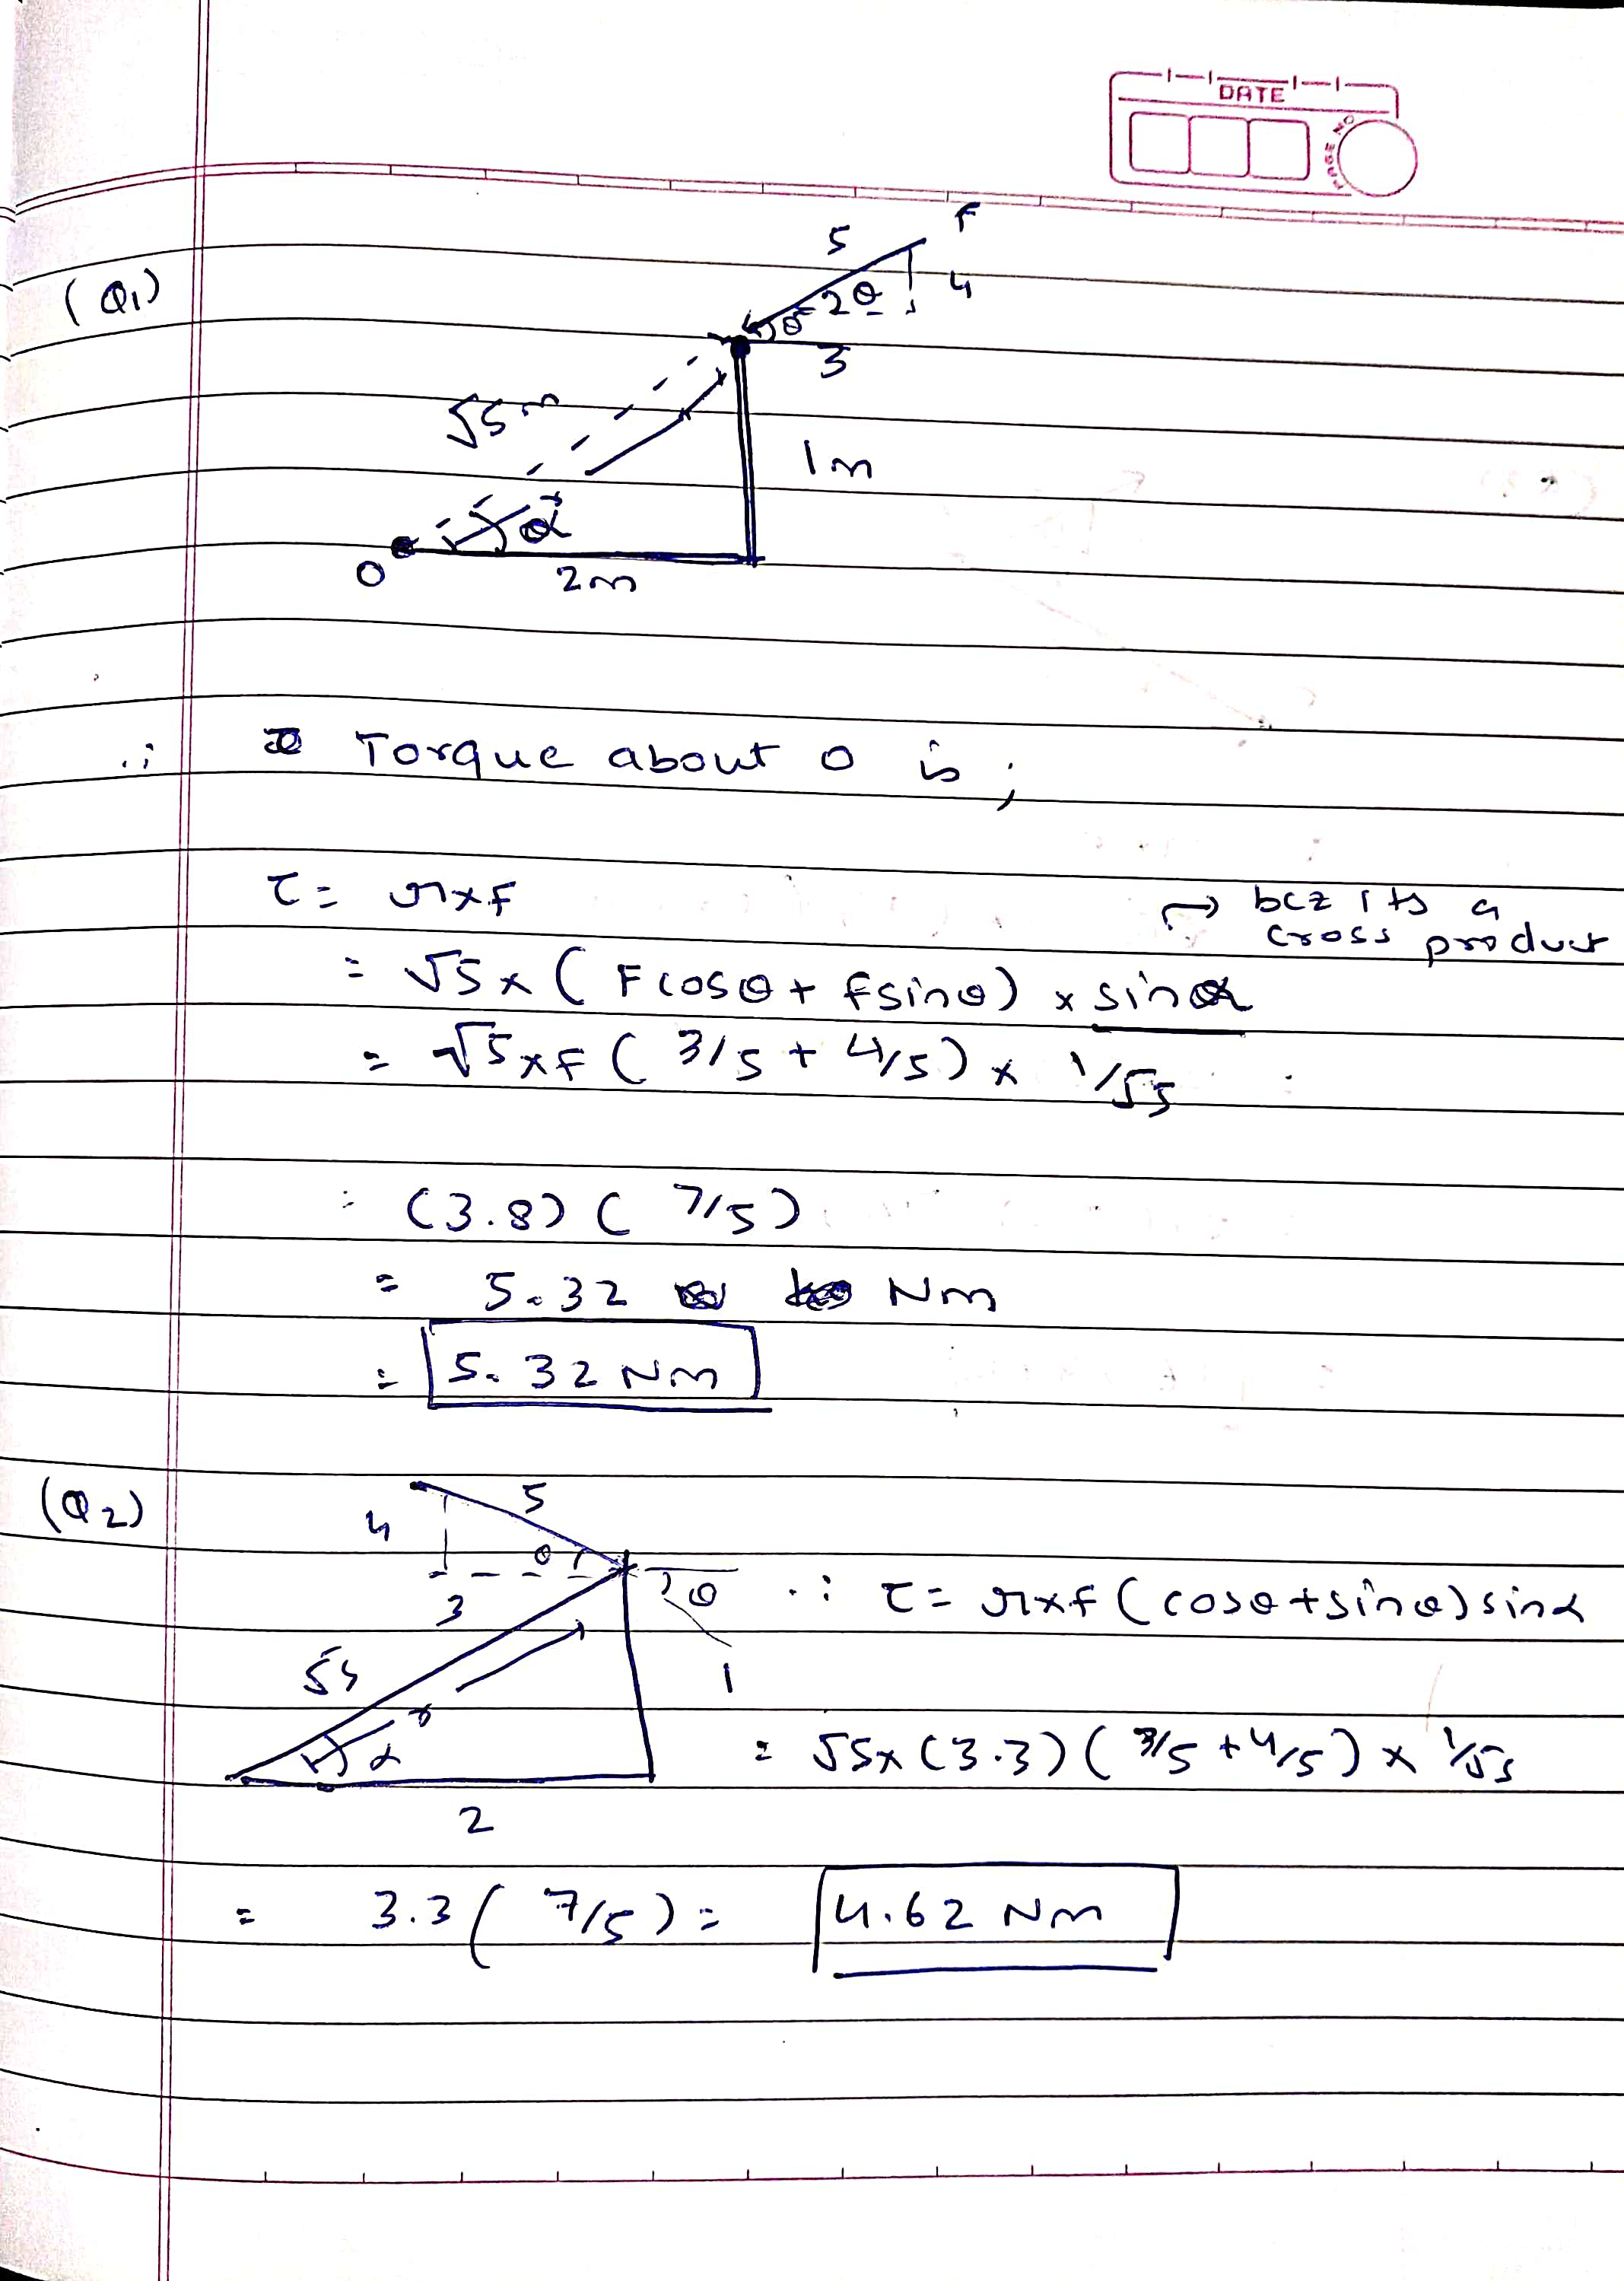 DATE
PAGE NO
(Q1)
5
F
4
θ
2θ
3
√5 m
1m
α
O
2m
∴ Torque about O is ;
τ = r×F
→ bcz its a
cross product
= √5 × ( F cosθ + F sinθ) × sinα
= √5 × F ( 3/5 + 4/5) × 1/√5
= (3.8) ( 7/5)
= 5.32 Nm
= 5.32 Nm
(Q2)
5
4
θ
3
θ
∴ τ = r×F ( cosθ + sinθ) sinα
√5
1
r
α
= √5 × (3.3) ( 3/5 + 4/5) × 1/√5
2
= 3.3 ( 7/5) = 4.62 Nm